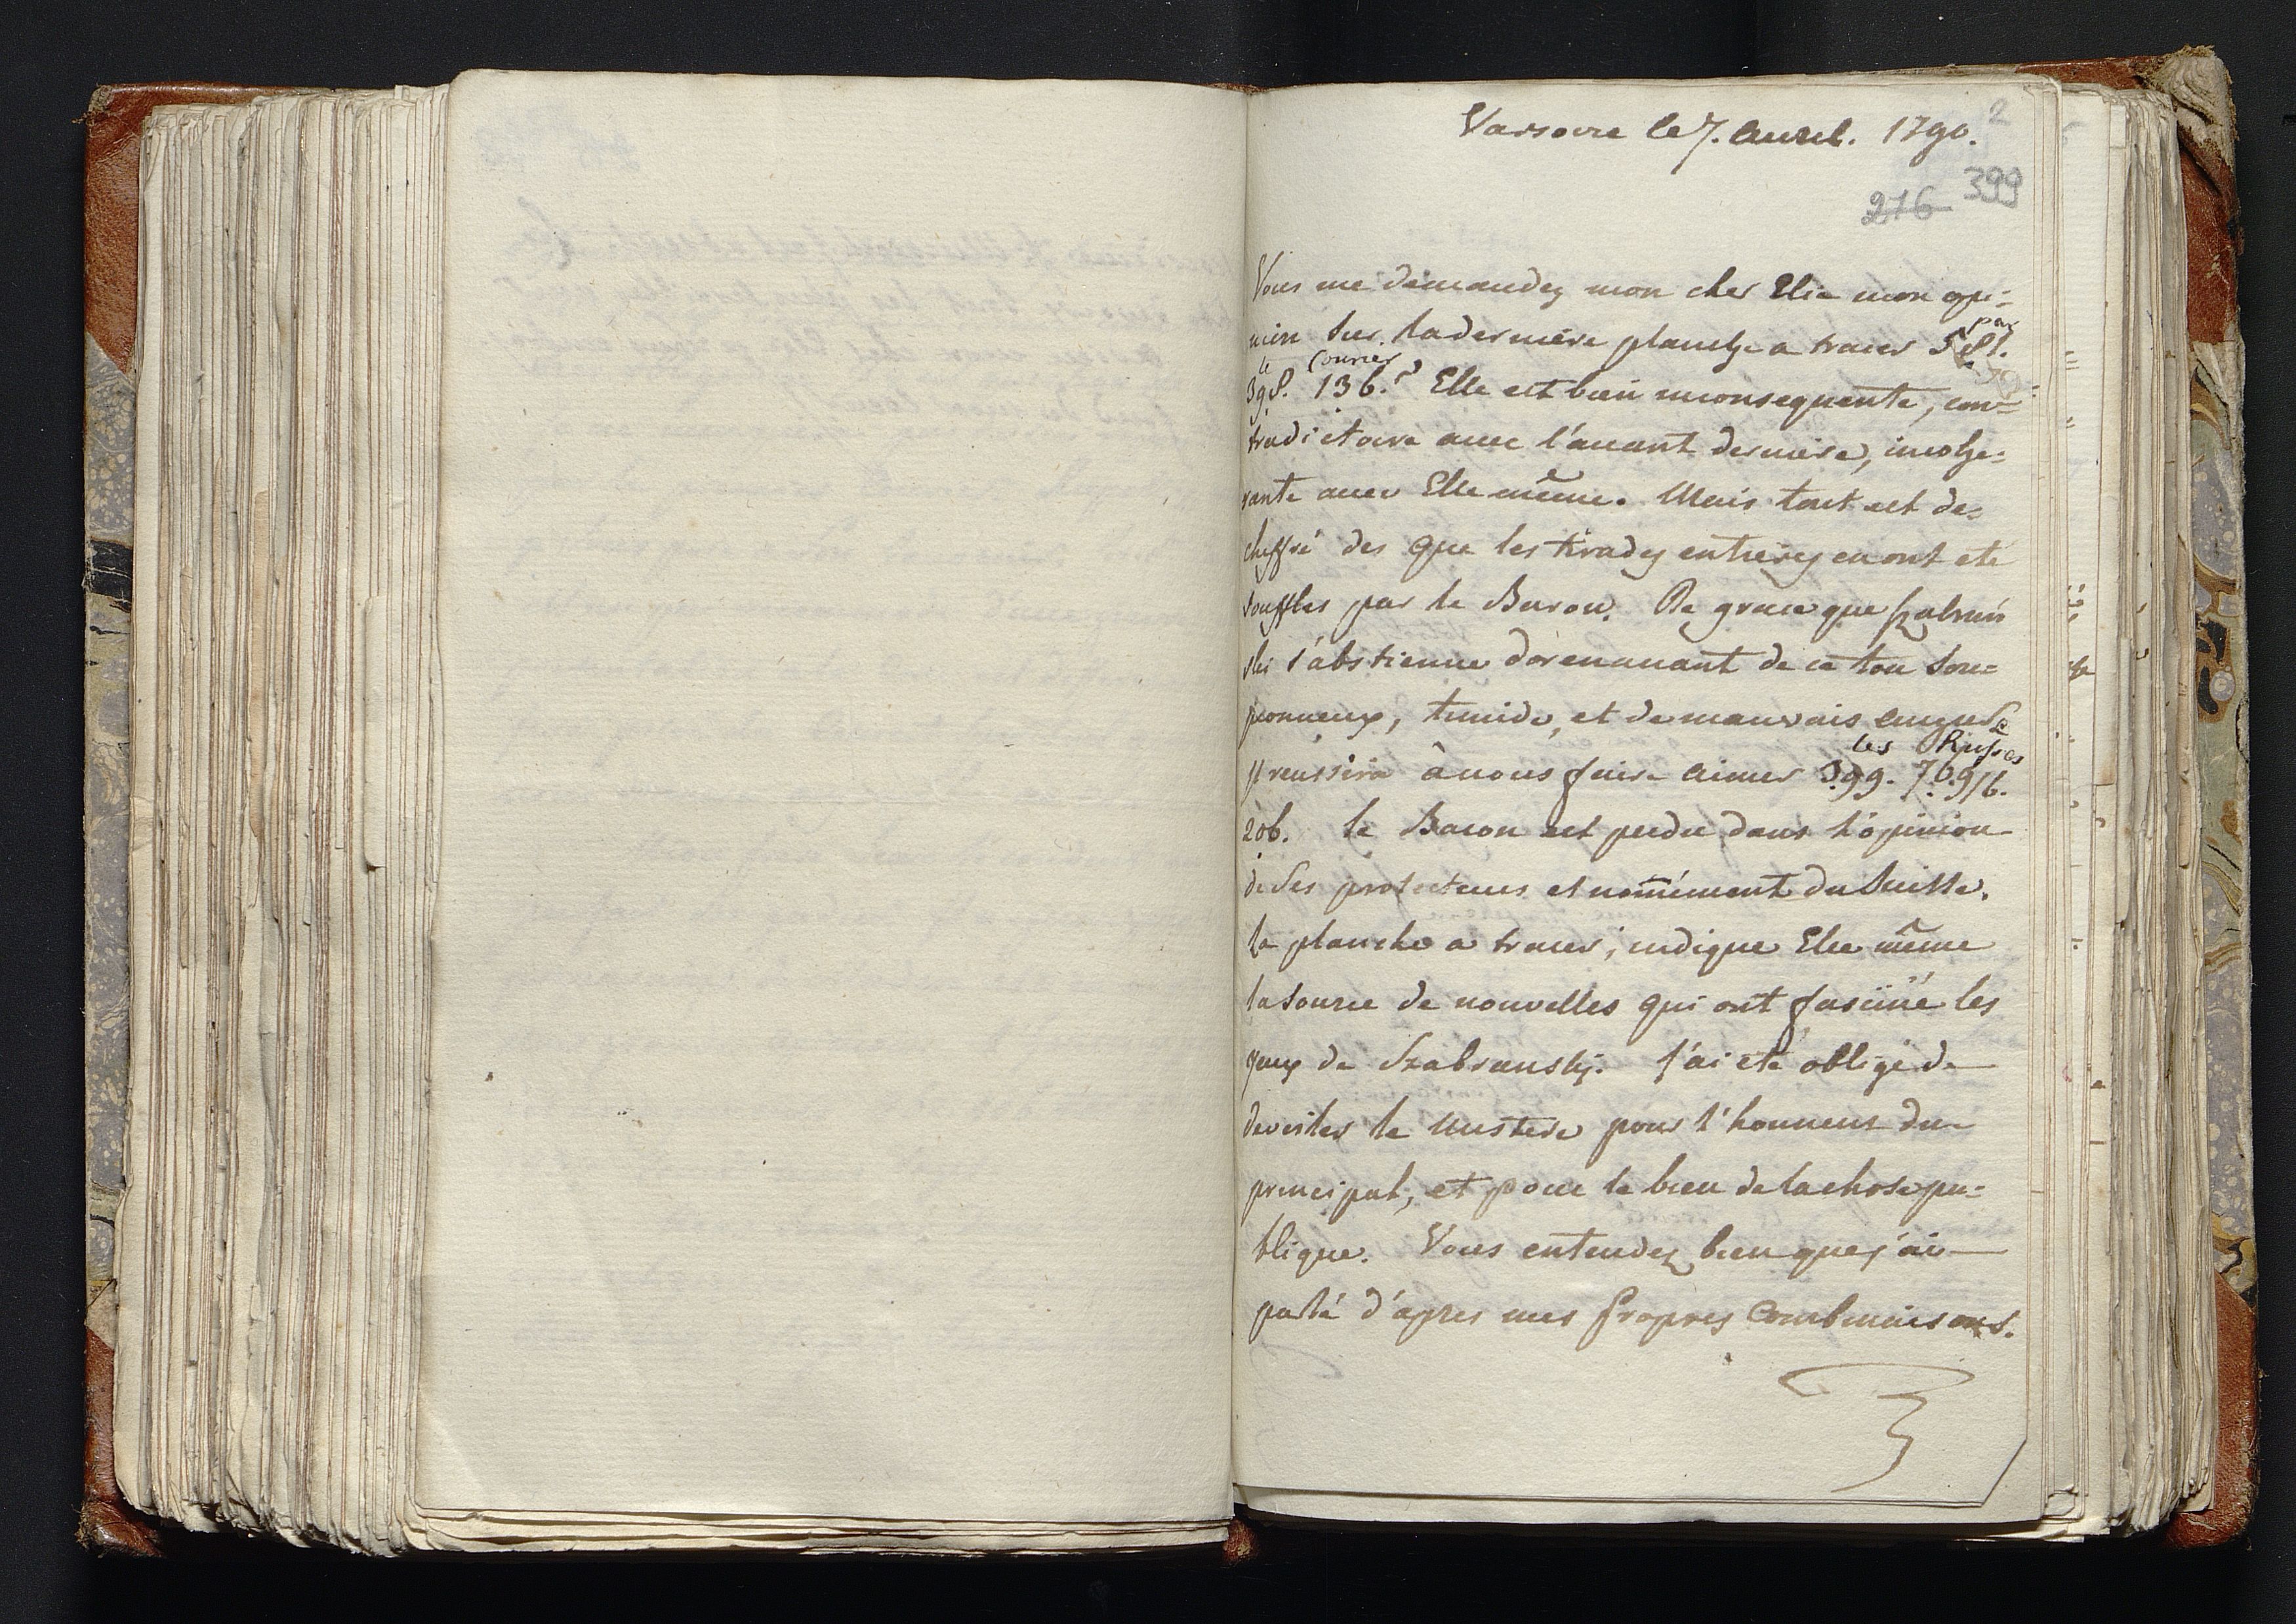 Varsovie le 7. Avril. 1790. 2
216 399
Vous me demandez mon cher Elie mon opi=
nion sur la derniére planche a tracer 581.
par
le Courier
398. 136.? Elle est bien inconsequente, con=
tradictoire avec l'avant derniére, incohe=
rante avec Elle même. Mais tout est de=
cheffré des que les tirades entieres en ont eté
soufflés par le Baron. De grace que Szabrań
ski s'abstienne dorenavant de ce ton sou=
pconneux, timide, et de mauvais augure
les Russes
Il reussira à nous faire aimer 399. 76. 916.
206. le Baron est perdu dans l'opinion
de ses protecteurs et nom̄ément du Suisse.
la planche a tracer, indique Elle même
la source de nouvelles qui ont fasciné les
yeux de Szabranski. J'ai eté obligé de
devoiler le mistere pour l'honneur du
principal, et pour le bien de la chose pu=
blique. Vous entendez bien que j'ai
parlé d'apres mes propres Combinaisons.